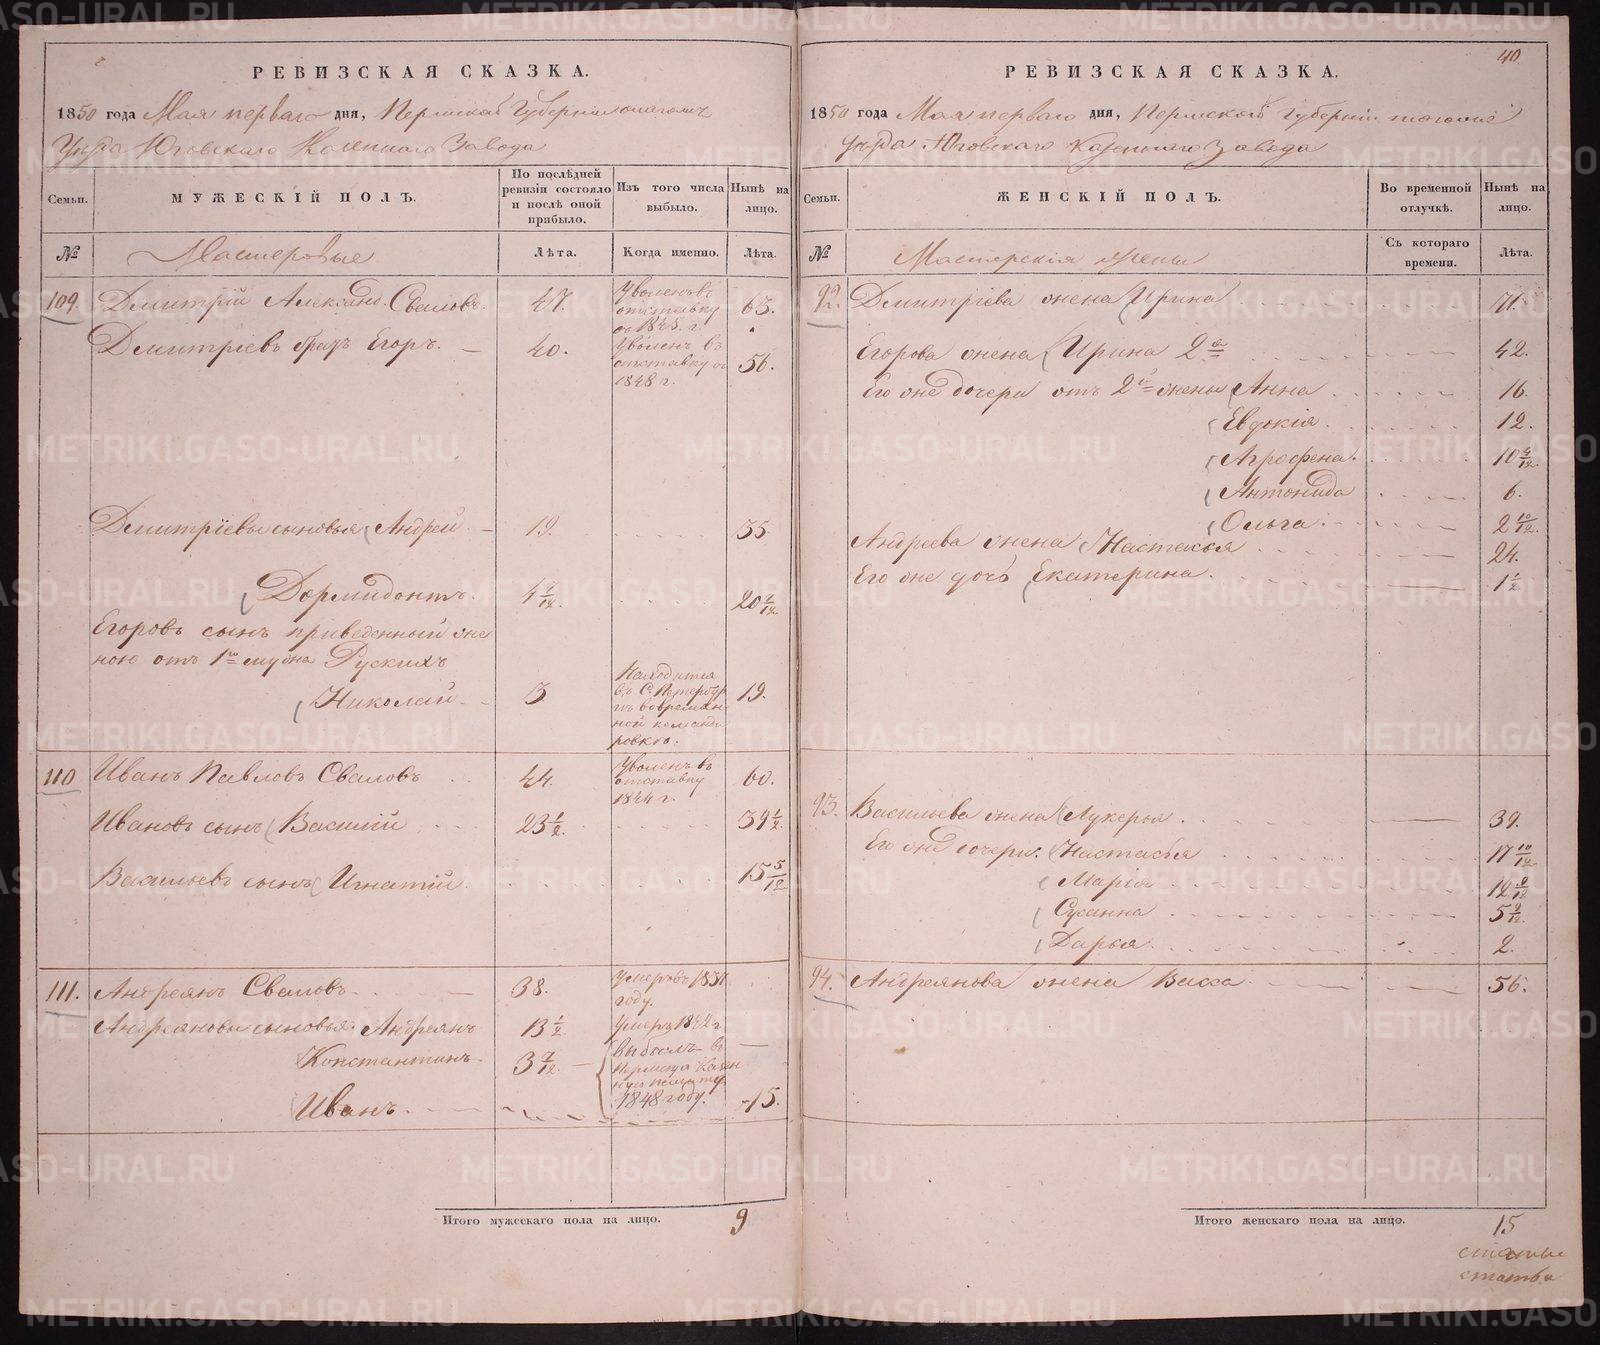 РЕВИЗСКАЯ СКАЗКА.
1850 года Мая перваго дня, Пермской Губернии
Уезда Юговскаго Казеннаго Завода
Семьи.
МУЖЕСКІЙ ПОЛЪ.
По послѣдней ревизіи состояло и послѣ оной прибыло.
Изъ того числа выбыло.
Нынѣ на лицо.
№
Мастеровые
Лѣта.
Когда именно.
Лѣта.
109. Дмитрій Александ. Сваловъ. 47. Уволенъ въ отставку съ 1845. г. 63.
Дмитріевъ братъ Егоръ. 40. Уволенъ въ отставку съ 1848 г. 56.
Дмитріевы сыновья Андрей 19. 35
Дормидонтъ. 4 20
Егоровъ сынъ приведенный же
ною отъ 1го мужа Рускихъ
Николай 3. Находится въ С. Петербург въ времен ной команди ровкѣ. 19.
110 Иванъ Павловъ Сваловъ 44. Уволенъ въ отставку 1844 г. 60.
Ивановъ сынъ Василій 23 1/2. 39 1/2
Васильевъ сынъ Игнатій. 15 5/12
111. Андреянъ Сваловъ 38. Умеръ въ 1837 году.
Андреяновы сыновья. Андреянъ 13 1/2 Умеръ 1842 г.
Константинъ 3 7/12. Выбылъ в Пермскую Казен ную 1848 году.
Иванъ 15.
Итого мужескаго пола на лицо. 9
40
РЕВИЗСКАЯ СКАЗКА.
1850 года Мая перваго дня, Пермской Губерніи
Уезда Юговскаго Казеннаго Завода
Семьи.
ЖЕНСКІЙ ПОЛЪ.
Во временной отлучкѣ.
Нынѣ на лицо.
№
Мастерскія жены
Съ котораго времени.
Лѣта.
92. Дмитріева жена Ирина
Егорова жена Ирина 2я 42.
Его же дочери отъ 2й жены Анна 16.
Евдокія 12.
Агрофена. 10
Антонида 6.
Ольга. 2 10/12.
Андреева жена Настасья 24.
Его же дочь Екатерина. 1 1/2
93. Васильева жена Лукерья 39.
Его же дочери: Настасья 17 10/12
Марія 12
Сусанна 5
Дарья 2.
94. Андреянова жена Васса 56.
Итого женскаго пола на лицо. 15
METRIKI.GASO-URAL.RU